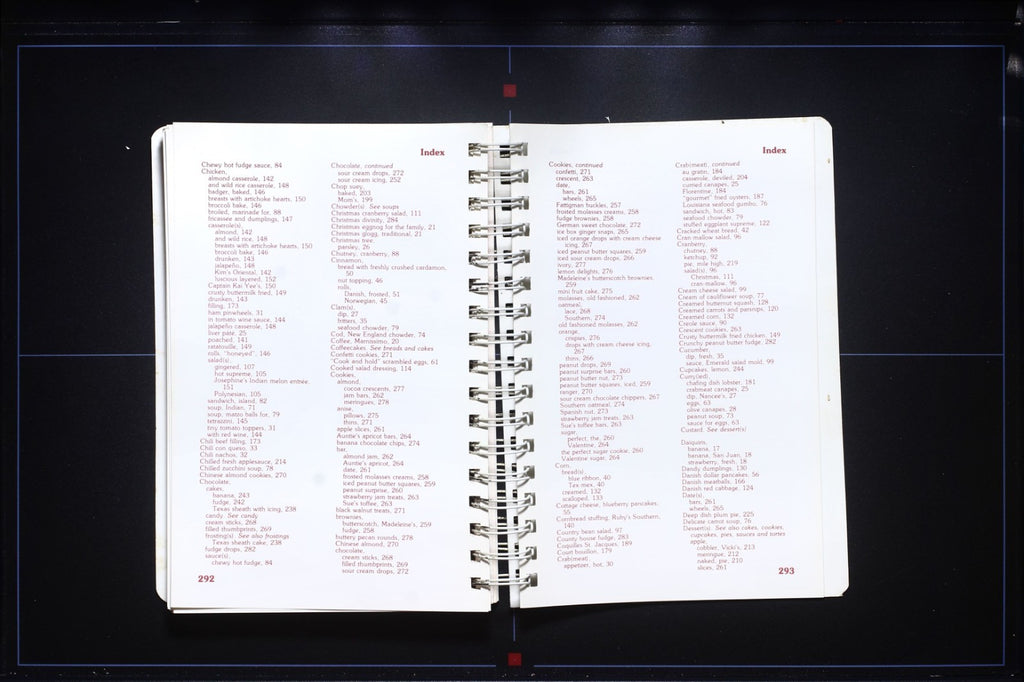 Index
Chewy hot fudge sauce, 84
Chicken,
almond casserole, 142
and wild rice casserole, 148
badger, baked, 146
breasts with artichoke hearts, 150
broccoli bake, 146
broiled, marinade for, 88
fricassee and dumplings, 147
casserole(s),
almond, 142
and wild rice, 148
breasts with artichoke hearts, 150
broccoli bake, 146
drunken, 143
jalapeño, 148
Kim's Oriental, 142
luscious layered, 152
Captain Kai Yee's, 150
crusty buttermilk fried, 149
drunken, 143
filling, 173
ham pinwheels, 31
in tomato wine sauce, 144
jalapeño casserole, 148
liver pâté, 25
poached, 141
ratatouille, 149
rolls, "honeyed", 146
salad(s),
gingered, 107
hot supreme, 105
Josephine's Indian melon entrée,
151
Polynesian, 105
sandwich, island, 82
soup, Indian, 71
soup, matzo balls for, 79
tetrazzini, 145
tiny tomato toppers, 31
with red wine, 144
Chili beef filling, 173
Chili con queso, 33
Chili nachos, 32
Chilled fresh applesauce, 214
Chilled zucchini soup, 78
Chinese almond cookies, 270
Chocolate,
cakes,
banana, 243
fudge, 242
Texas sheath with icing, 238
candy. See candy
cream sticks, 268
filled thumbprints, 269
frosting(s). See also frostings
Texas sheath cake, 238
fudge drops, 282
sauce(s),
chewy hot fudge, 84
292
Chocolate, continued
sour cream drops, 272
sour cream icing, 252
Chop suey,
baked, 203
Mom's, 199
Chowder(s). See soups
Christmas cranberry salad, 111
Christmas divinity, 284
Christmas eggnog for the family, 21
Christmas glogg, traditional, 21
Christmas tree,
parsley, 26
Chutney, cranberry, 88
Cinnamon,
bread with freshly crushed cardamon,
50
nut topping, 46
rolls,
Danish, frosted, 51
Norwegian, 45
Clam(s),
dip, 27
fritters, 35
seafood chowder, 79
Cod, New England chowder, 74
Coffee, Marnissimo, 20
Coffeecakes. See breads and cakes
Confetti cookies, 271
"Cook and hold" scrambled eggs, 61
Cooked salad dressing, 114
Cookies,
almond,
cocoa crescents, 277
jam bars, 262
meringues, 278
anise,
pillows, 275
thins, 271
apple slices, 261
Auntie's apricot bars, 264
banana chocolate chips, 274
bar,
almond jam, 262
Auntie's apricot, 264
date, 261
frosted molasses creams, 258
iced peanut butter squares, 259
peanut surprise, 260
strawberry jam treats, 263
Sue's toffee, 263
black walnut treats, 271
brownies,
butterscotch, Madeleine's, 259
fudge, 258
buttery pecan rounds, 278
Chinese almond, 270
chocolate,
cream sticks, 268
filled thumbprints, 269
sour cream drops, 272
Index
Cookies, continued
confetti, 271
crescent, 263
date,
bars, 261
wheels, 265
Fattigman buckles, 257
frosted molasses creams, 258
fudge brownies, 258
German sweet chocolate, 272
ice box ginger snaps, 265
iced orange drops with cream cheese
icing, 267
iced peanut butter squares, 259
iced sour cream drops, 266
ivory, 277
lemon delights, 276
Madeleine's butterscotch brownies,
259
mini fruit cake, 275
molasses, old fashioned, 262
oatmeal,
lace, 268
Southern, 274
old fashioned molasses, 262
orange,
crispas, 276
drops with cream cheese icing,
267
thins, 266
peanut drops, 269
peanut surprise bars, 260
peanut butter nut, 273
peanut butter squares, iced, 259
ranger, 270
sour cream chocolate chippers, 267
Southern oatmeal, 274
Spanish nut, 273
strawberry jam treats, 263
Sue's toffee bars, 263
sugar,
perfect, the, 260
Valentine, 264
the perfect sugar cookie, 260
Valentine sugar, 264
Corn,
bread(s),
blue ribbon, 40
Tex mex, 40
creamed, 132
scalloped, 133
Cottage cheese, blueberry pancakes,
55
Cornbread stuffing, Ruby's Southern,
140
Country bean salad, 97
County house fudge, 283
Coquilles St. Jacques, 189
Court bouillon, 179
Crab(meat)
appetizer, hot, 30
Crab(meat), continued
au gratin, 184
casserole, deviled, 204
curried canapes, 25
Florentine, 184
"gourmet" fried oysters, 187
Louisiana seafood gumbo, 76
sandwich, hot, 83
seafood chowder, 79
stuffed eggplant supreme, 122
Cracked wheat bread, 42
Cran mallow salad, 96
Cranberry,
chutney, 88
ketchup, 92
pie, mile high, 219
salad(s), 96
Christmas, 111
cran-mallow, 96
Cream cheese salad, 99
Cream of cauliflower soup, 77
Creamed butternut squash, 128
Creamed carrots and parsnips, 120
Creamed corn, 132
Creole sauce, 90
Crescent cookies, 263
Crusty buttermilk fried chicken, 149
Crunchy peanut butter fudge, 282
Cucumber,
dip, fresh, 35
sauce, Emerald salad mold, 99
Cupcakes, lemon, 244
Curry(ied),
chafing dish lobster, 181
crabmeat canapes, 25
dip, Nancee's, 27
eggs, 63
olive canapes, 28
peanut soup, 73
sauce for eggs, 63
Custard. See dessert(s)
Daiquiris,
banana, 17
banana, San Juan, 18
strawberry, fresh, 18
Dandy dumplings, 130
Danish dollar pancakes, 56
Danish meatballs, 166
Danish red cabbage, 124
Date(s),
bars, 261
wheels, 265
Deep dish plum pie, 225
Delicate carrot soup, 76
Dessert(s). See also cakes, cookies,
cupcakes, pies, sauces and tortes
apple,
cobbler, Vicki's, 213
meringue, 212
naked, pie, 210
slices, 261
293